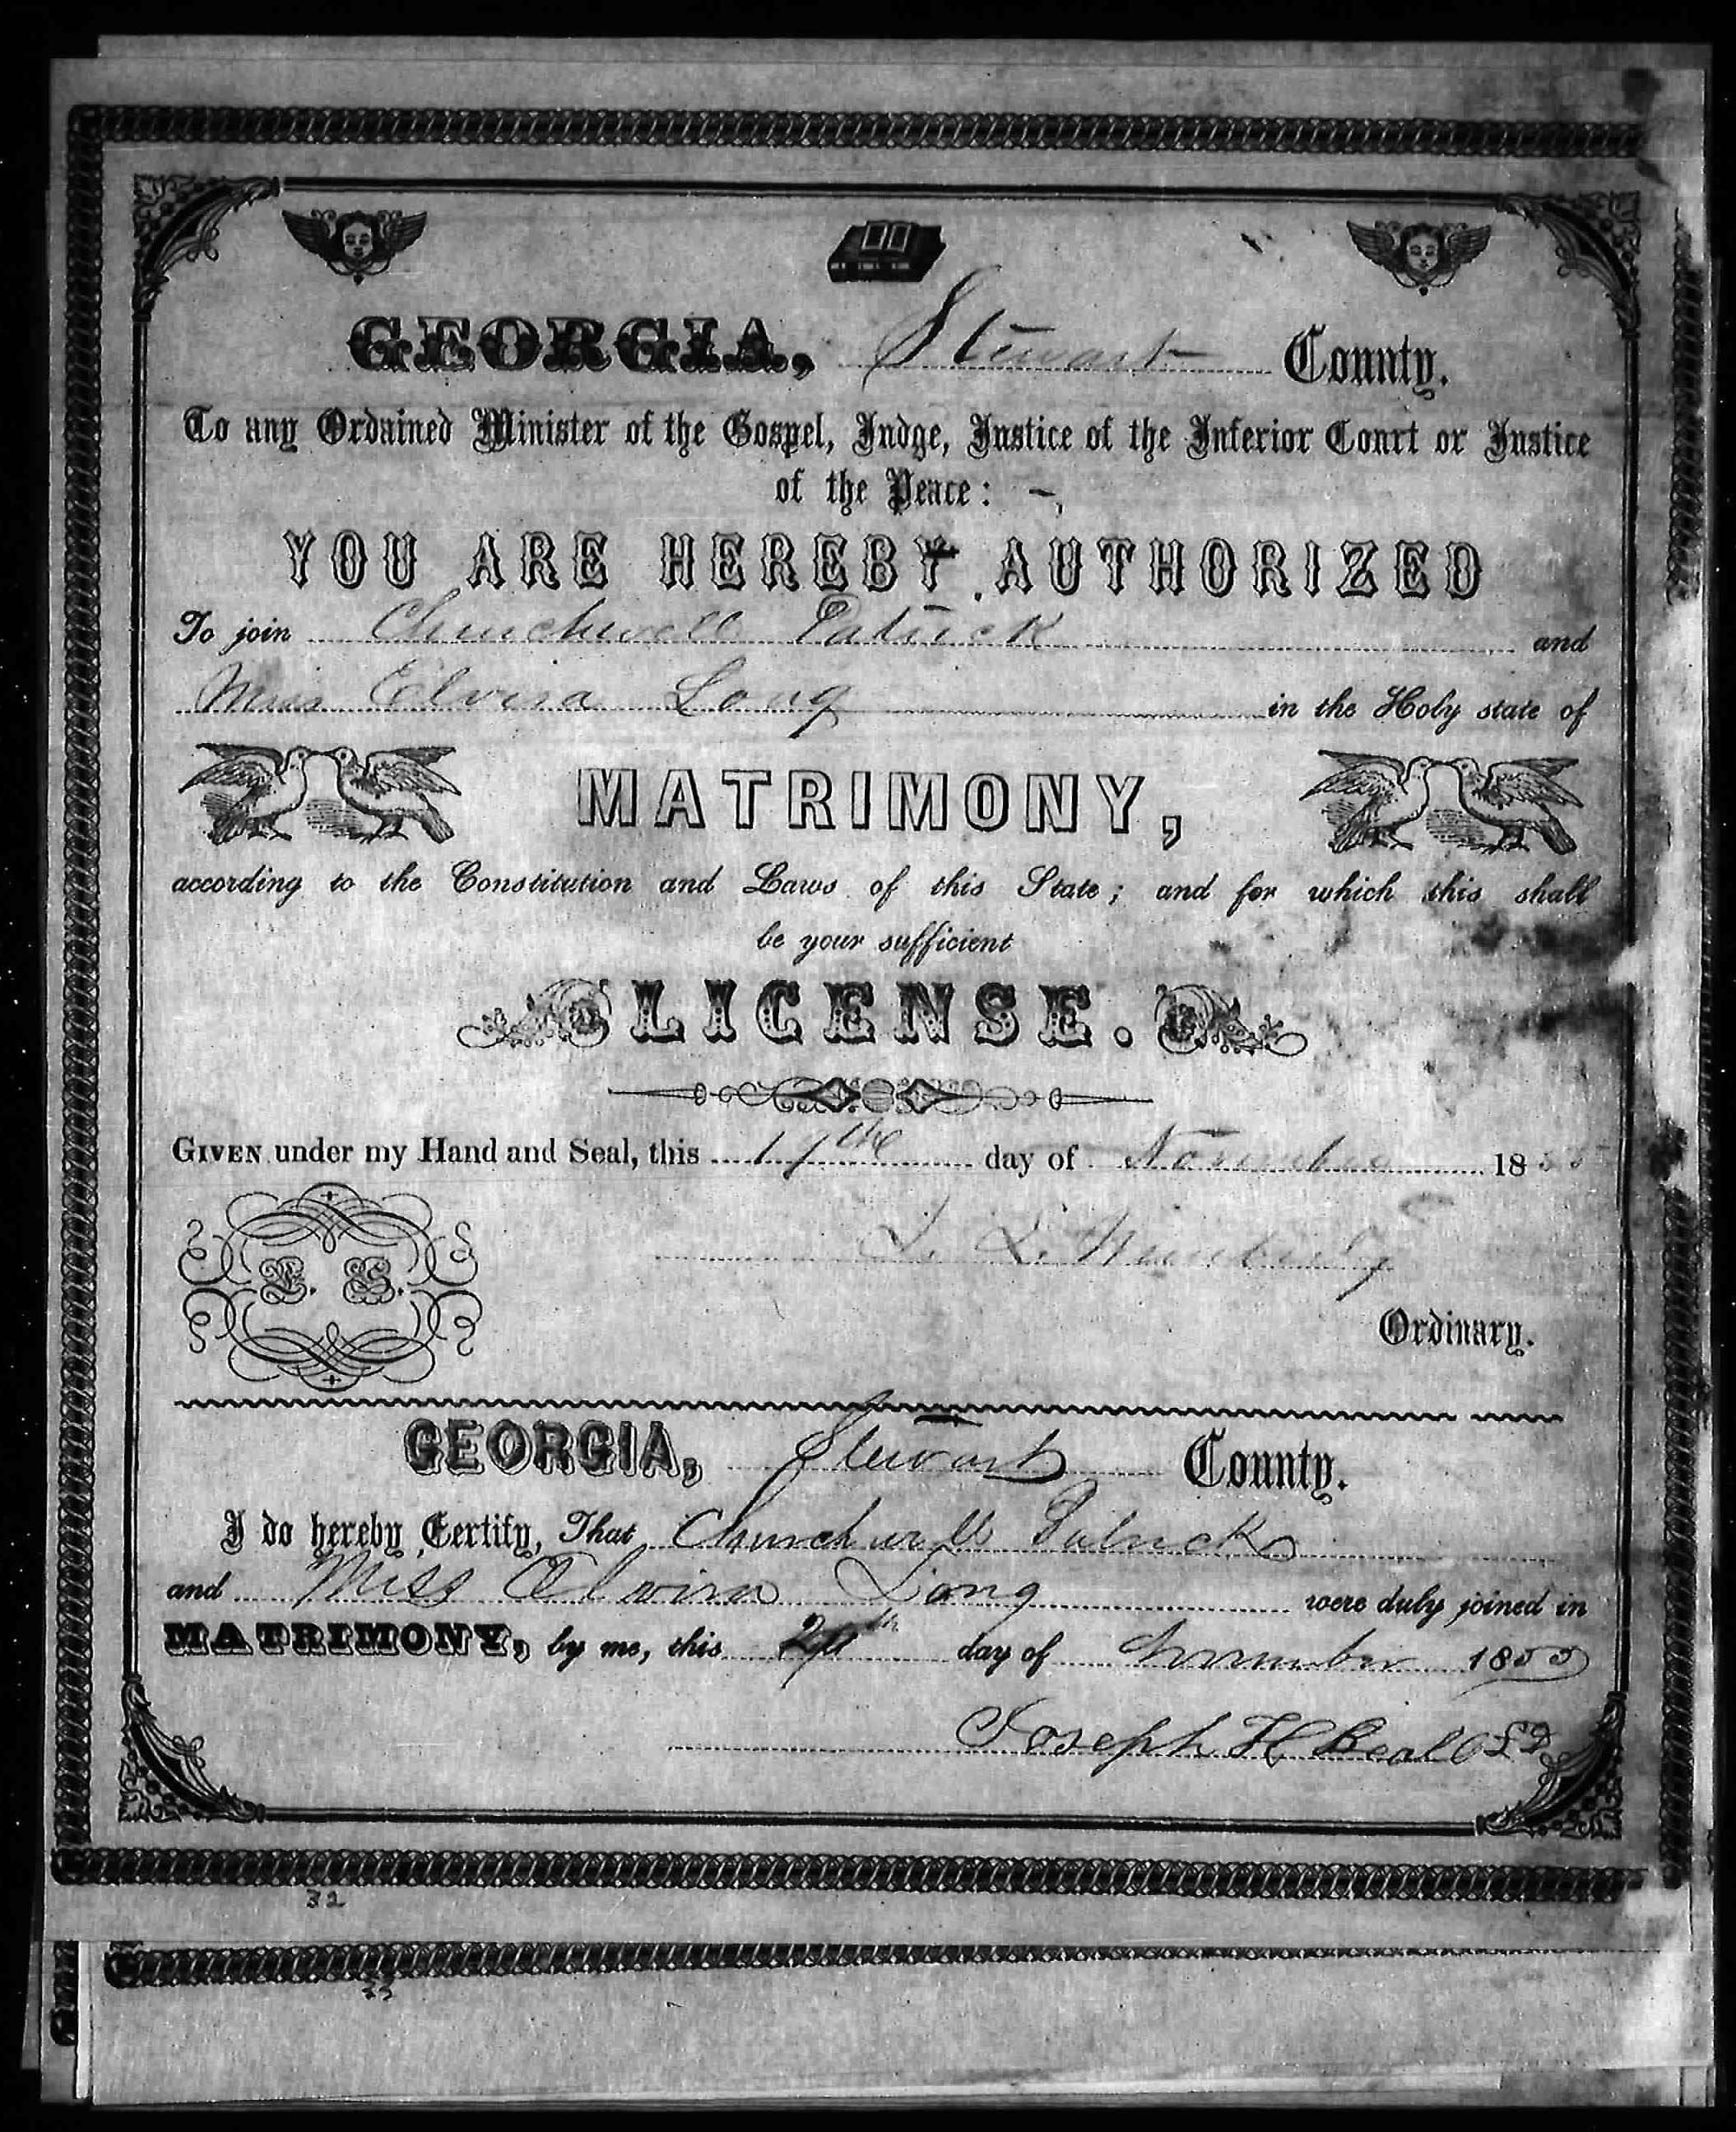 GEORGIA, Stewart County.
To any Ordained Minister of the Gospel, Judge, Justice of the Inferior Court or Justice
of the Peace: –,
YOU ARE HEREBY AUTHORIZED
To join Churchwell Patrick and
Miss Elvira Long in the Holy state of
MATRIMONY,
according to the Constitution and Laws of this State; and for which this shall
be your sufficient
LICENSE.
GIVEN under my Hand and Seal, this 17th day of November 1855
L. S.
Ordinary.
GEORGIA, Stewart County.
I do hereby Certify, That Churchwell Patrick
and Miss Elvira Long were duly joined in
MATRIMONY, by me, this day of November 1855
Joseph H Beall
32
33